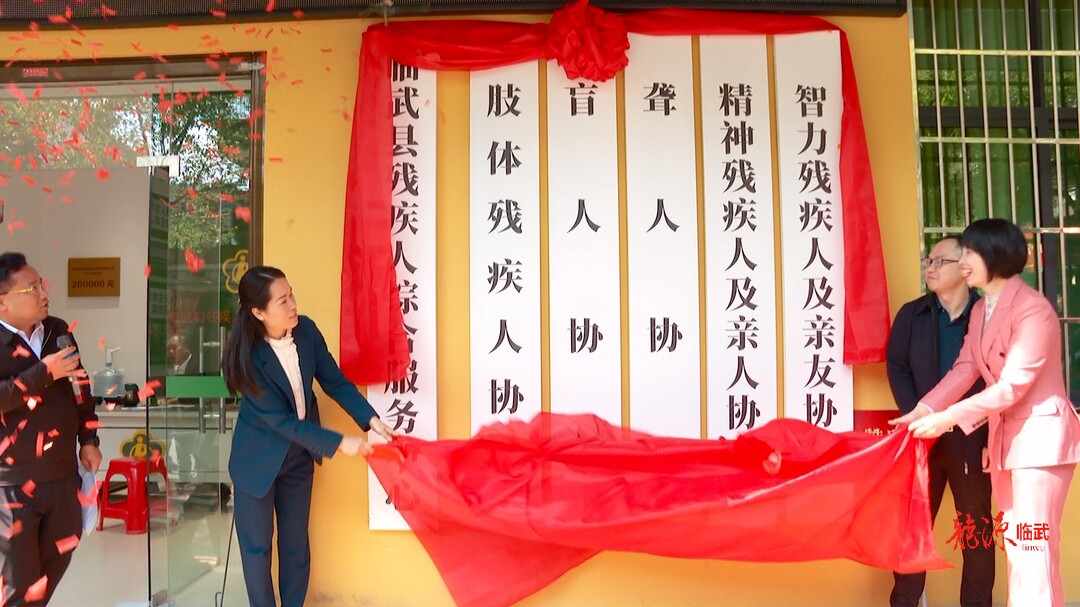 临武县残疾人综合服务
肢体残疾人协
盲人协
聋人协
精神残疾人及亲人协
智力残疾人及亲友协
200000元
龙源临武